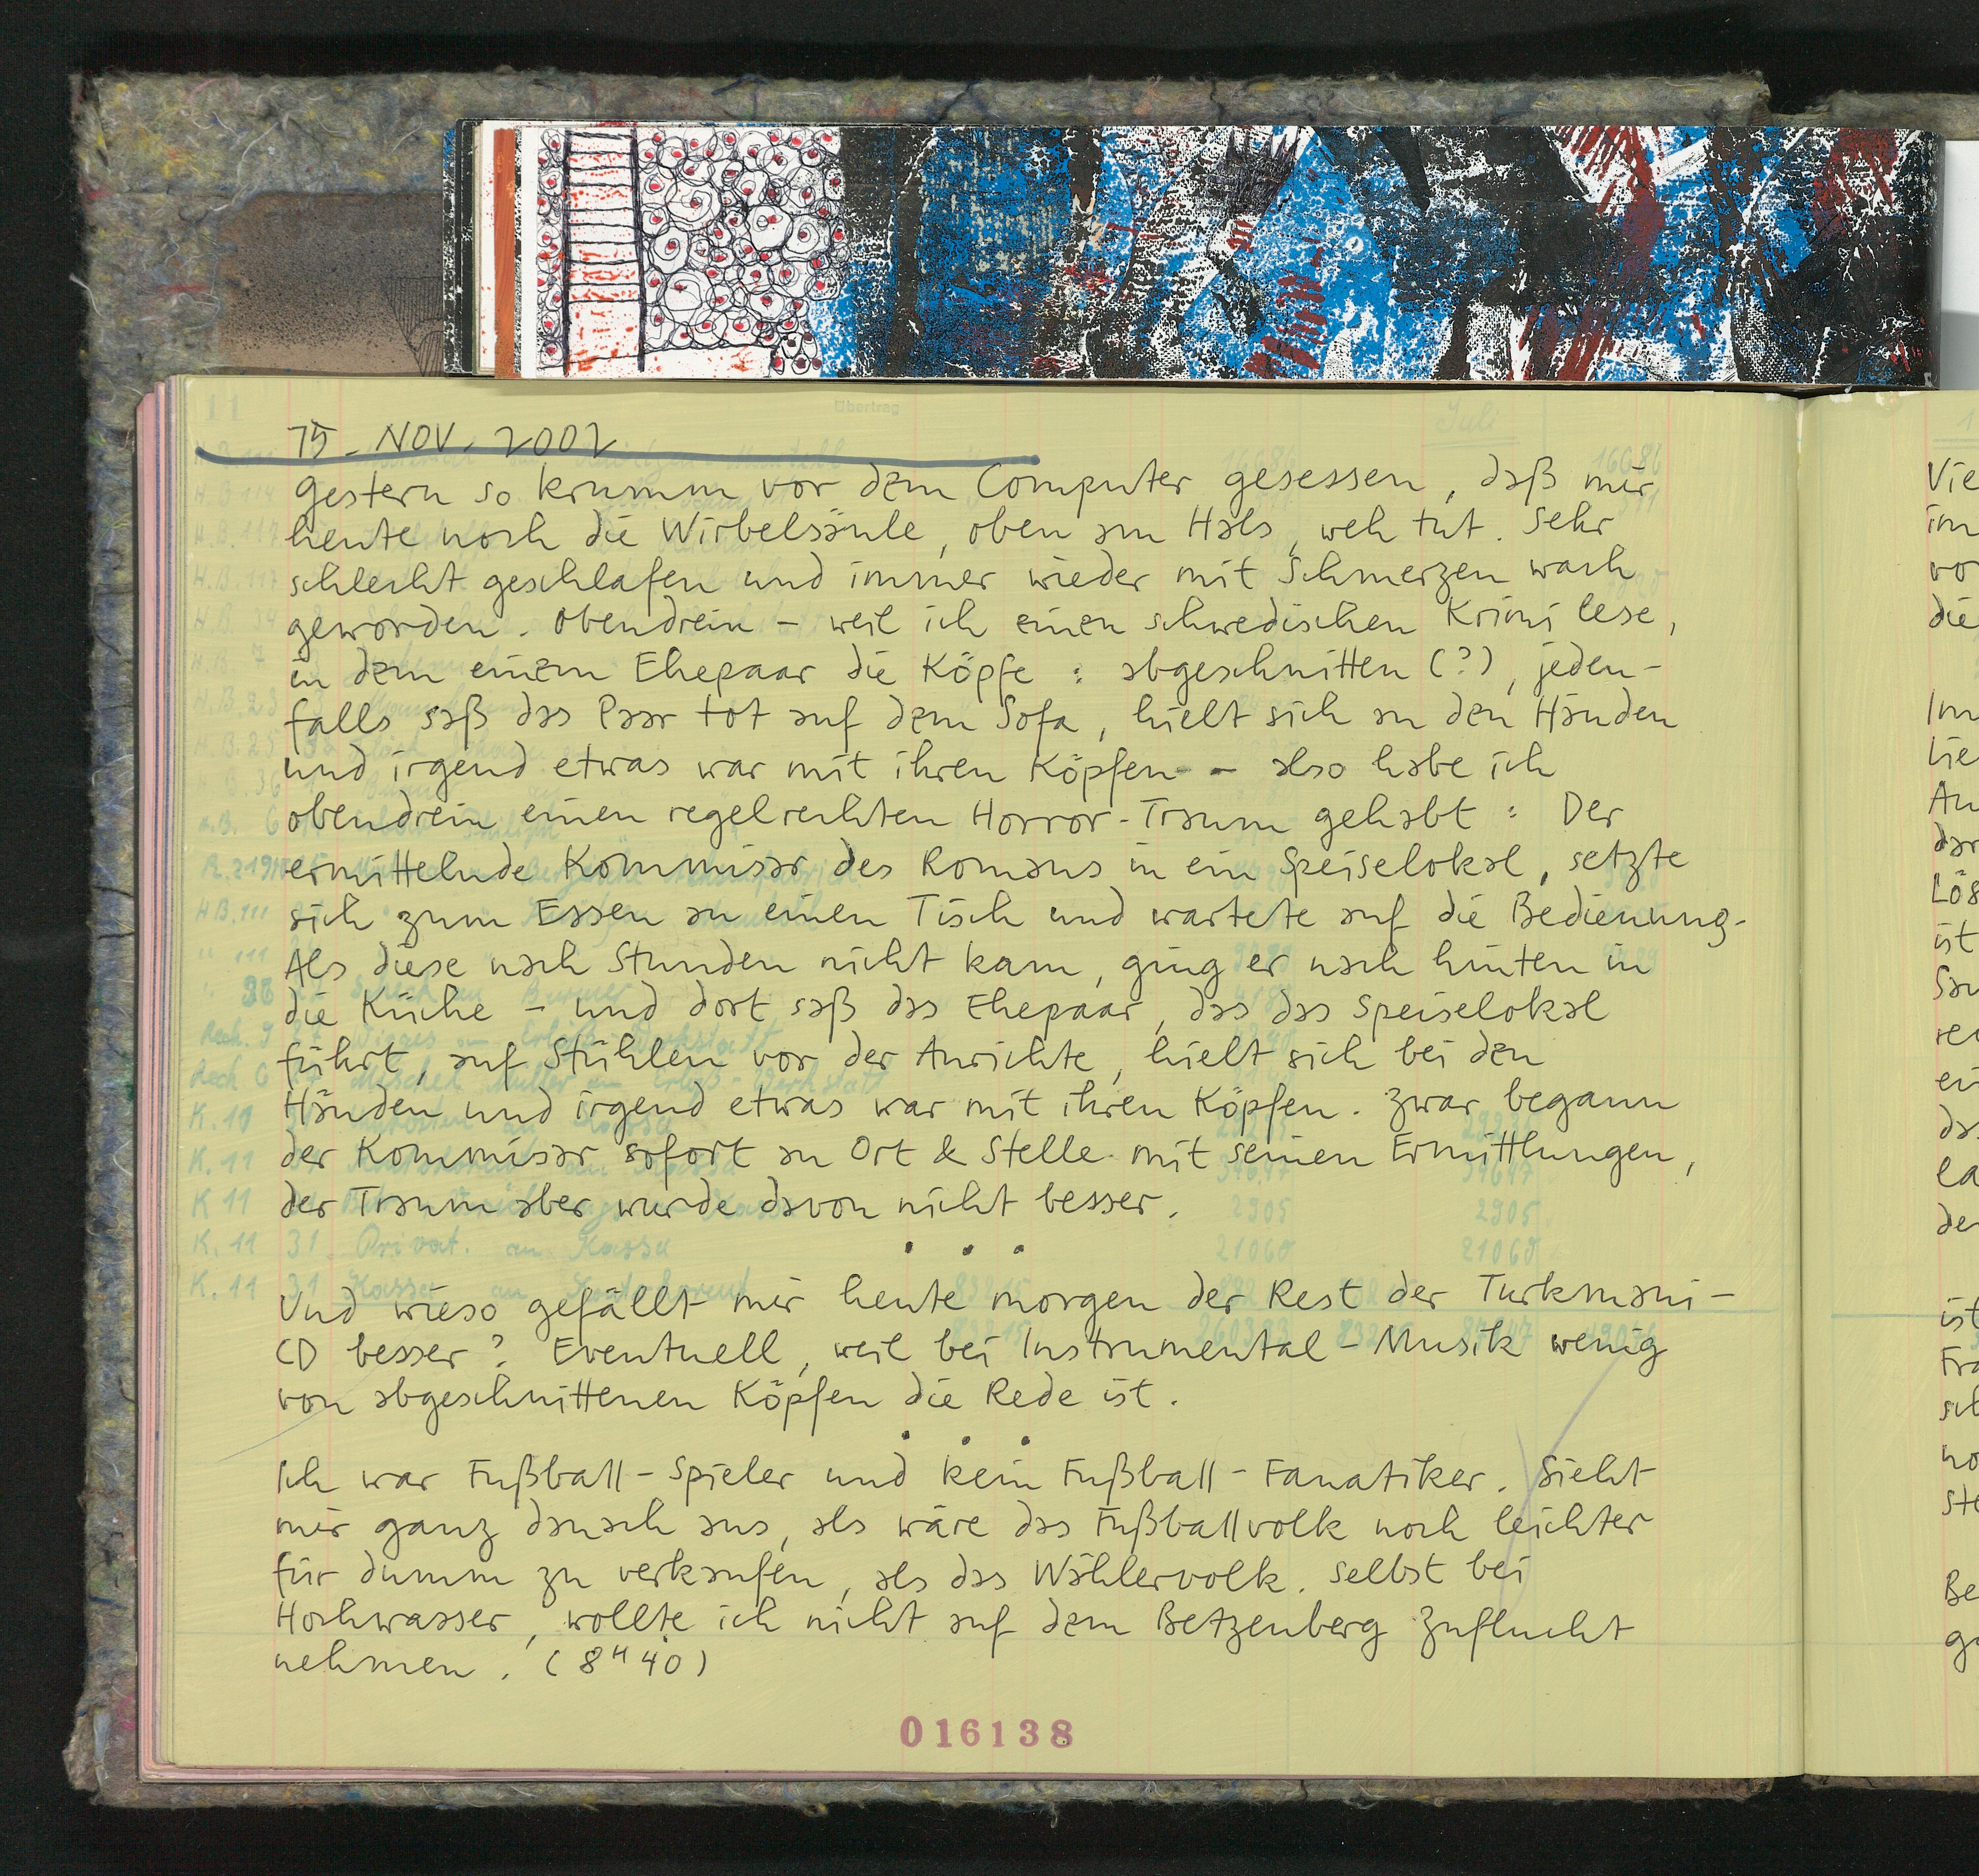 15. NOV. 2002
Gestern so krumm vor dem Computer gesessen, daß mir
heute noch die Wirbelsäule, oben am Hals, weh tut. Sehr
schlecht geschlafen und immer wieder mit Schmerzen wach
geworden. Obendrein – weil ich einen schwedischen Krimi lese,
in dem einem Ehepaar die Köpfe : abgeschnitten (?), jeden-
falls saß das Paar tot auf dem Sofa, hielt sich an den Händen
und irgend etwas war mit ihren Köpfen – also habe ich
obendrein einen regelrechten Horror-Traum gehabt : Der
ermittelnde Kommissar des Romans in ein Speiselokal, setzte
sich zum Essen an einen Tisch und wartete auf die Bedienung.
Als diese nach Stunden nicht kam, ging er nach hinten in
die Küche – und dort saß das Ehepaar, das das Speiselokal
führt, auf Stühlen vor der Anrichte, hielt sich bei den
Händen und irgend etwas war mit ihren Köpfen. Zwar begann
der Kommissar sofort an Ort & Stelle mit seinen Ermittlungen,
der Traum aber wurde davon nicht besser.
. . .
Und wieso gefällt mir heute morgen der Rest der Turkmani-
CD besser? Eventuell, weil bei Instrumental-Musik wenig
von abgeschnittenen Köpfen die Rede ist.
. . .
Ich war Fußball-Spieler und kein Fußball-Fanatiker. Sieht
mir ganz danach aus, als wäre das Fußballvolk noch leichter
für dumm zu verkaufen, als das Wählervolk. Selbst bei
Hochwasser, wollte ich nicht auf dem Betzenberg Zuflucht
nehmen. (8H40)
016138